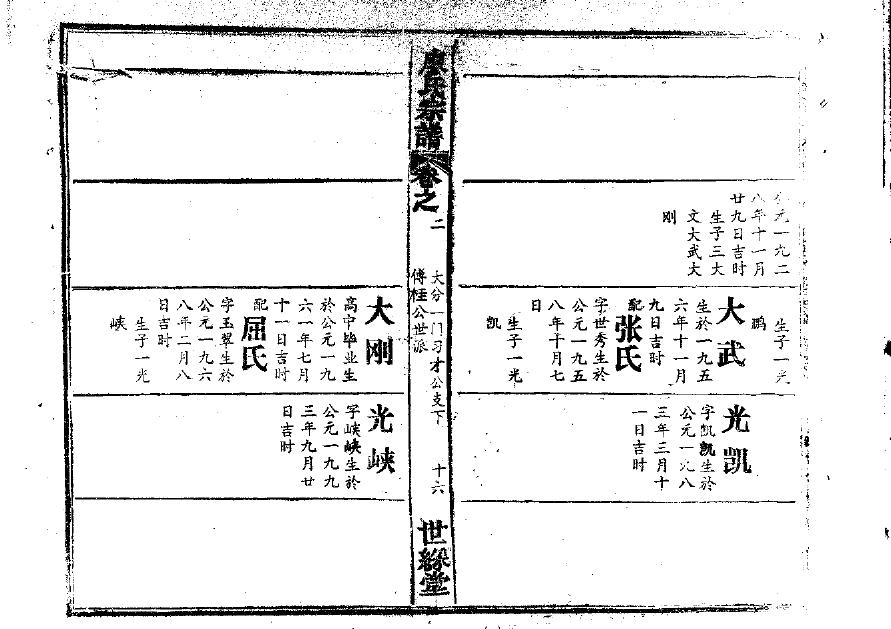 公元一九二
八年十一月
廿九日吉时
生子三大
文大武大
刚
生子一光
鹏
大武
生於一九五
六年十一月
九日吉时
配
张氏
字世秀生於
公元一九五
八年十月七
日
生子一光
凯
光凯
字凯凯生於
公元一九八
三年三月十
一日吉时
氏宗譜
卷之
二
大分一门习才公支下
傅桂公世派
十六
世綵堂
大刚
高中毕业生
於公元一九
六一年七月
十一日吉时
配
屈氏
字玉翠生於
公元一九六
八年二月八
日吉时
生子一光
峡
光峡
字峡峡生於
公元一九九
三年九月廿
日吉时